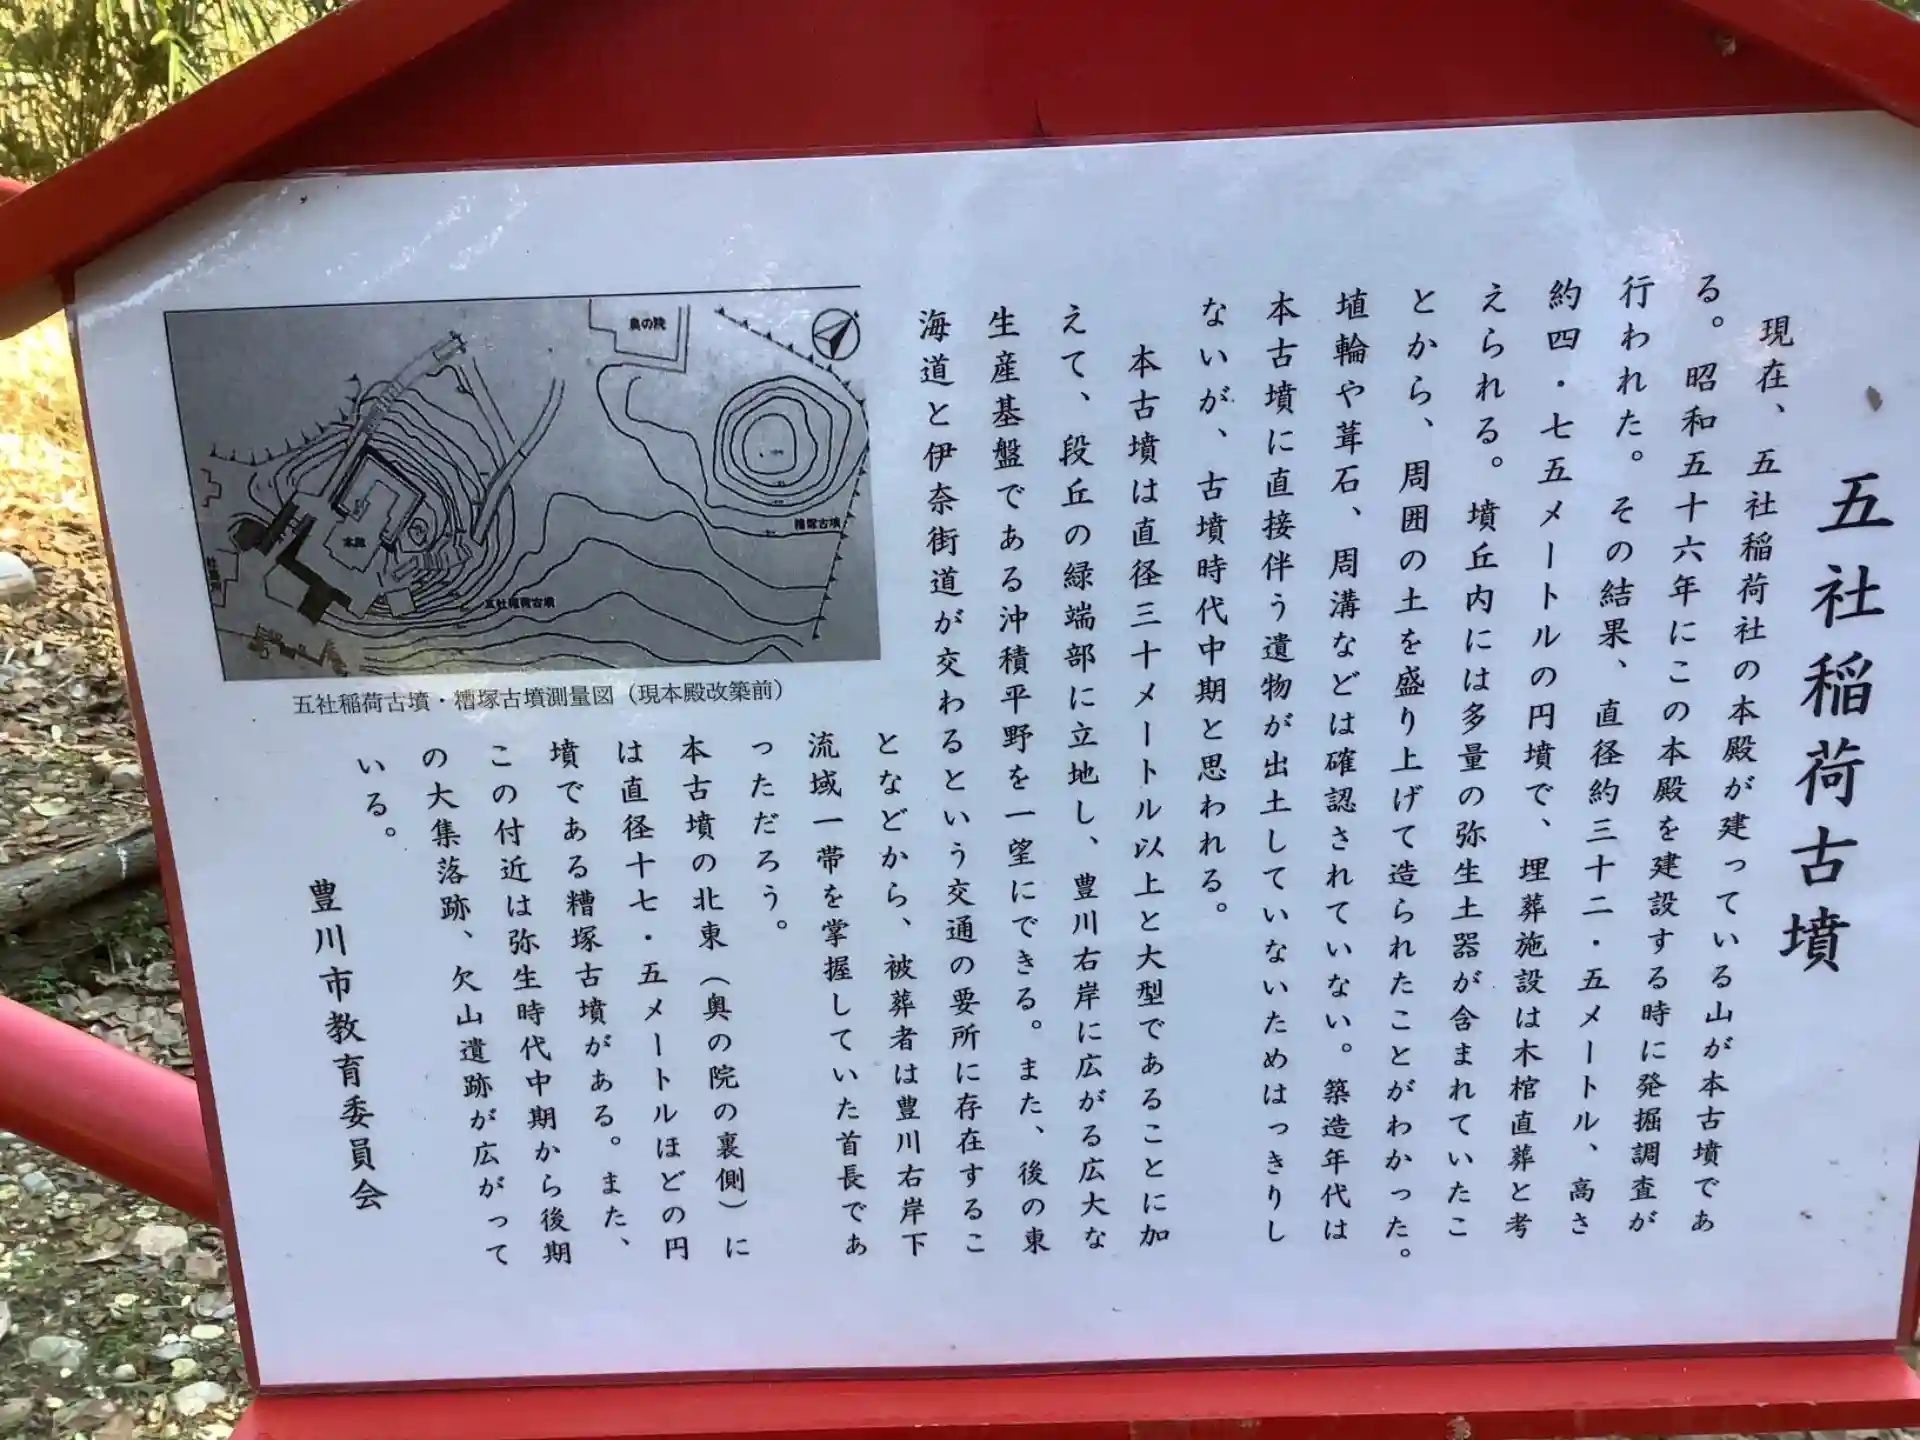 五社稲荷古墳
現在、五社稲荷社の本殿が建っている山が本古墳であ
る。昭和五十六年にこの本殿を建設する時に発掘調査が
行われた。その結果、直径約三十二・五メートル、高さ
約四・七五メートルの円墳で、埋葬施設は木棺直葬と考
えられる。墳丘内には多量の弥生土器が含まれていたこ
とから、周囲の土を盛り上げて造られたことがわかった。
埴輪や葺石、周溝などは確認されていない。築造年代は
本古墳に直接伴う遺物が出土していないためはっきりし
ないが、古墳時代中期と思われる。
本古墳は直径三十メートル以上と大型であることに加
えて、段丘の緑端部に立地し、豊川右岸に広がる広大な
生産基盤である沖積平野を一望にできる。また、後の東
海道と伊奈街道が交わるという交通の要所に存在するこ
となどから、被葬者は豊川右岸下
流域一帯を掌握していた首長であ
っただろう。
本古墳の北東（奥の院の裏側）に
は直径十七・五メートルほどの円
墳である糟塚古墳がある。また、
この付近は弥生時代中期から後期
の大集落跡、欠山遺跡が広がって
いる。
豊川市教育委員会
奥の院
糟塚古墳
本殿
五社稲荷古墳
社務所
五社稲荷古墳・糟塚古墳測量図（現本殿改築前）